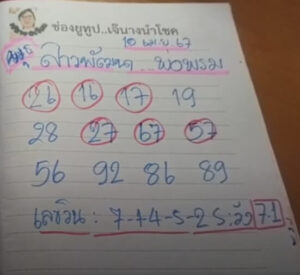 ช่องยูทูป..เจ๊นางนำโชค
16 เม.ย 67
สาวพัฒนา...พ่อพรม
26 16 17 19
28 27 67 57
56 92 86 89
เลขวิน : 7-4-5-2 ระวัง 71